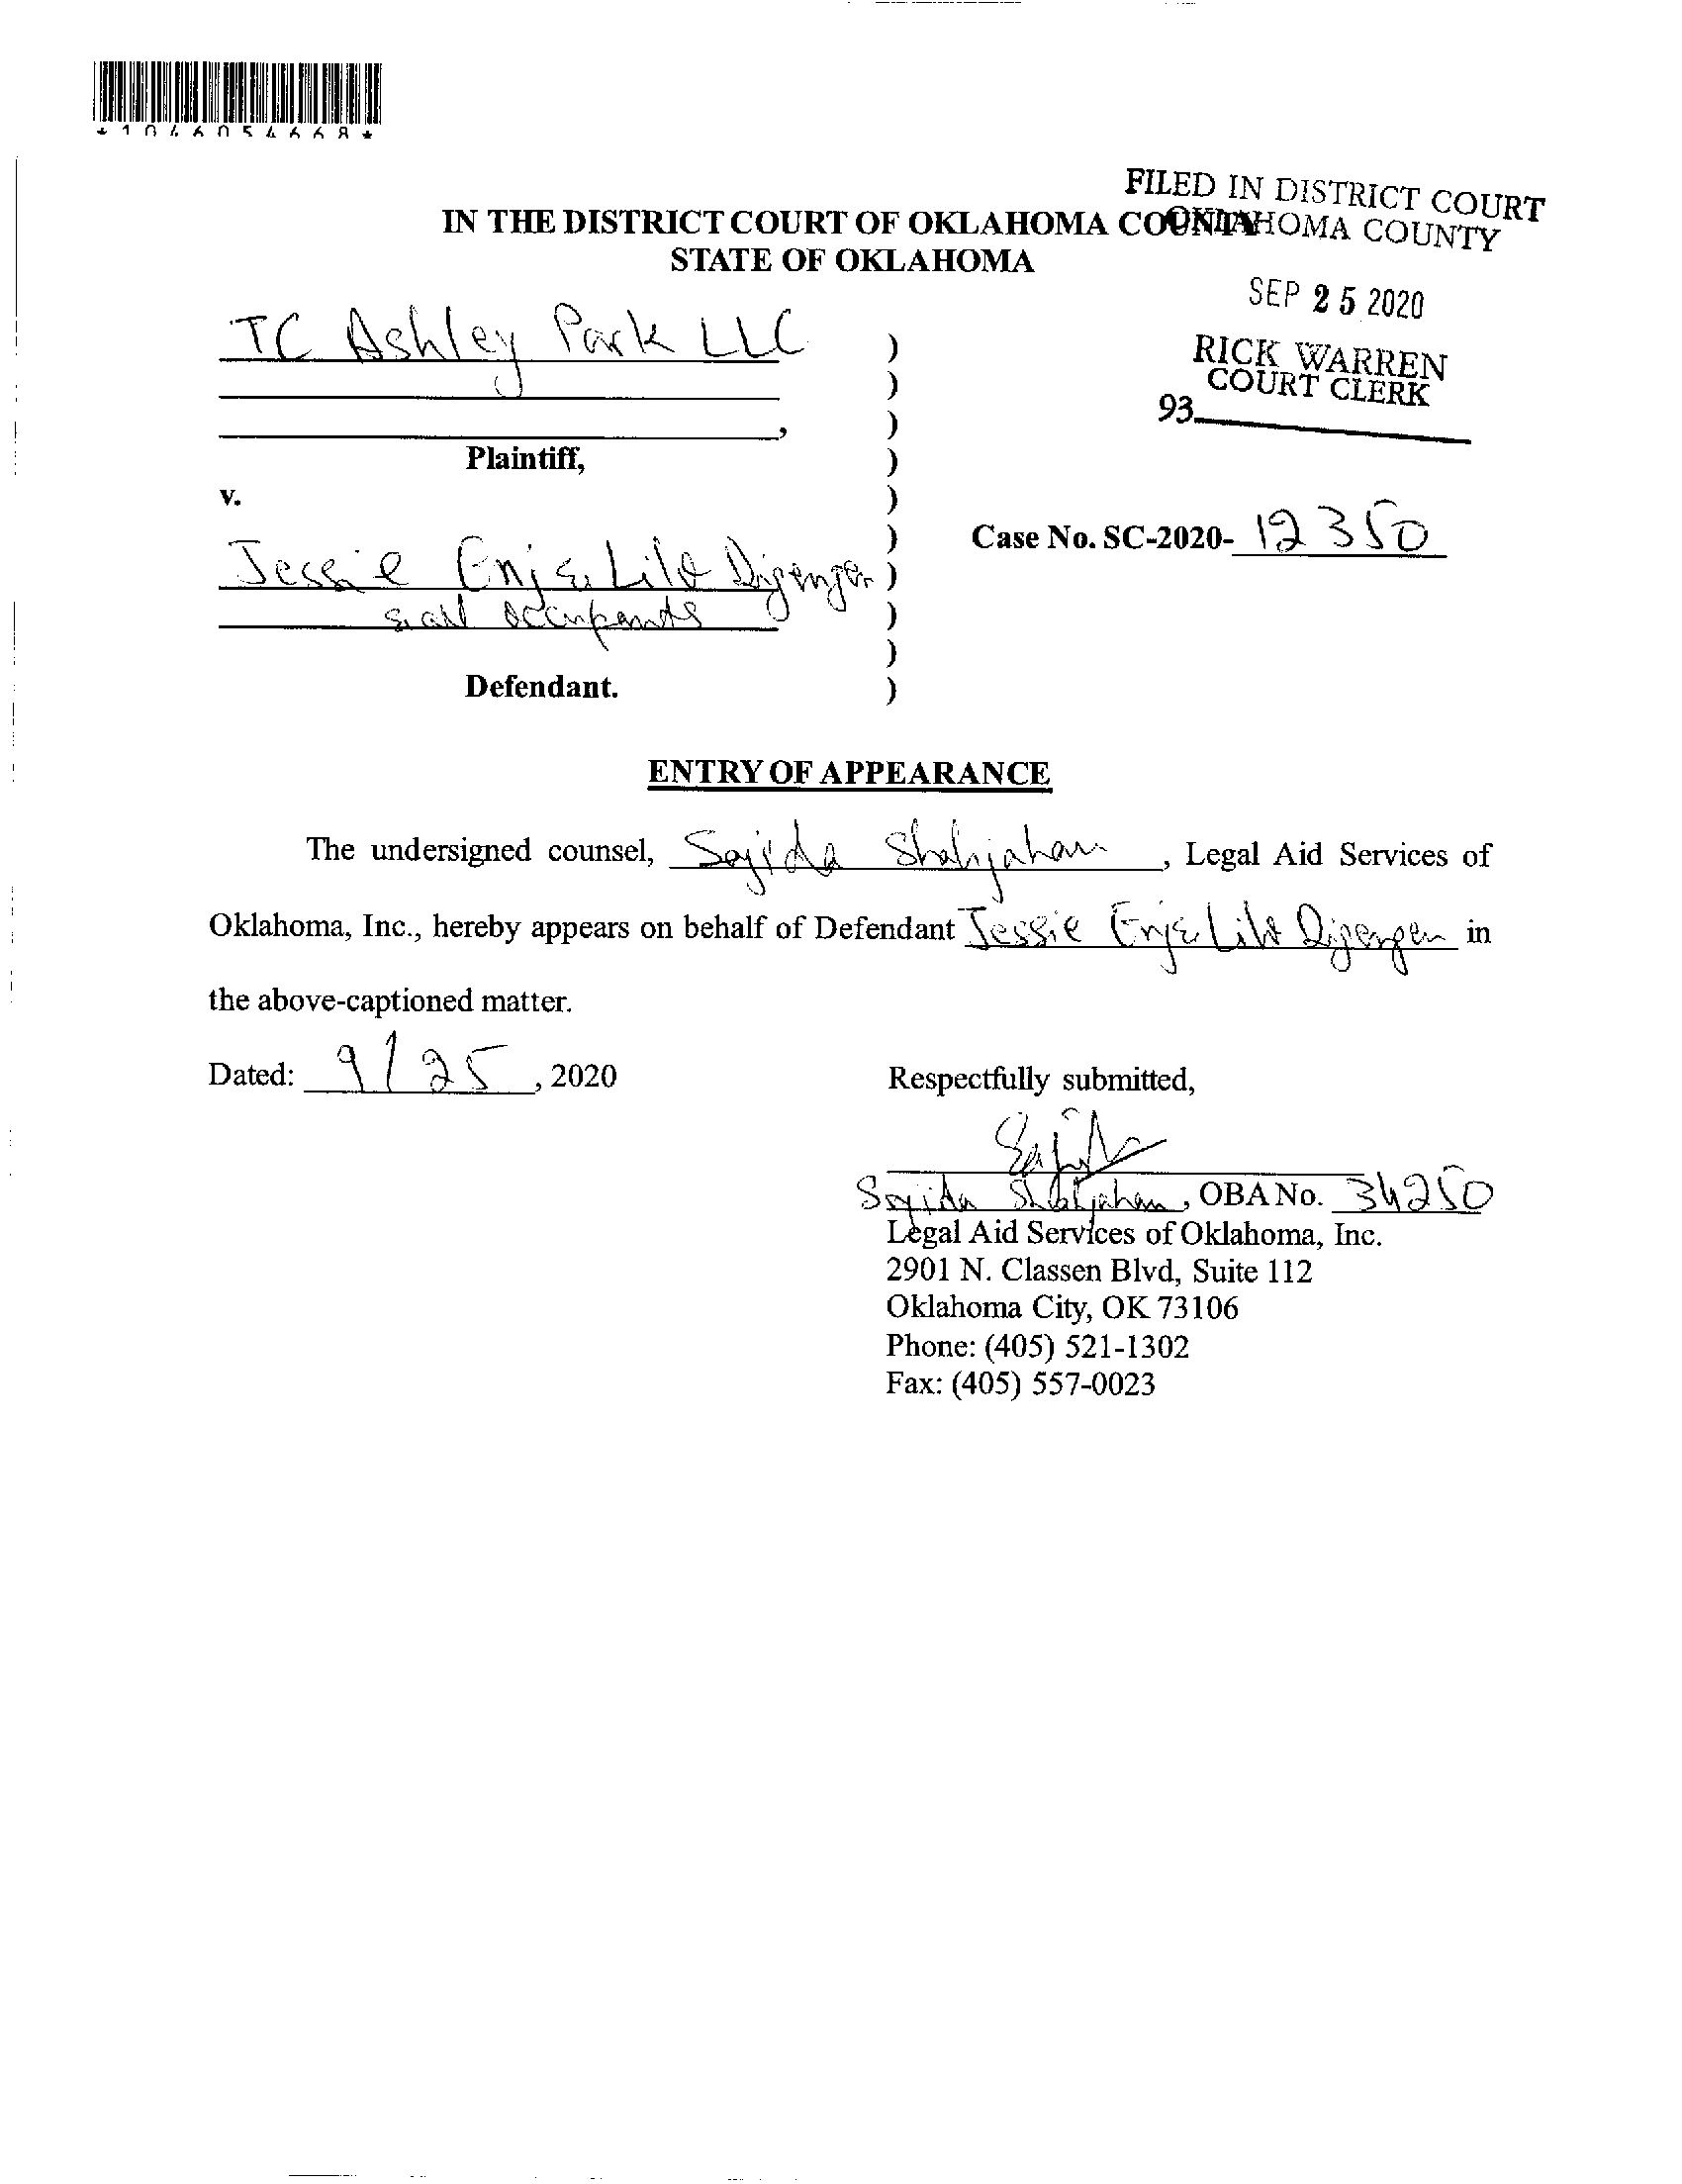 *1046054668*
FILED IN DISTRICT COURT
OKLAHOMA COUNTY
IN THE DISTRICT COURT OF OKLAHOMA COUNTY
STATE OF OKLAHOMA
SEP 25 2020
RICK WARREN
COURT CLERK
93
TC Ashley Park LLC
)
)
, )
Plaintiff, )
v. )
Case No. SC-2020- 12350
Jessie Enj & Lilo )
& all occupants )
)
Defendant. )
ENTRY OF APPEARANCE
The undersigned counsel, Sajida Shahjahan, Legal Aid Services of
Oklahoma, Inc., hereby appears on behalf of Defendant Jessie Enj & Lilo in
the above-captioned matter.
Dated: 9/25, 2020
Respectfully submitted,
Sajida
Sajida Shahjahan, OBA No. 34250
Legal Aid Services of Oklahoma, Inc.
2901 N. Classen Blvd, Suite 112
Oklahoma City, OK 73106
Phone: (405) 521-1302
Fax: (405) 557-0023